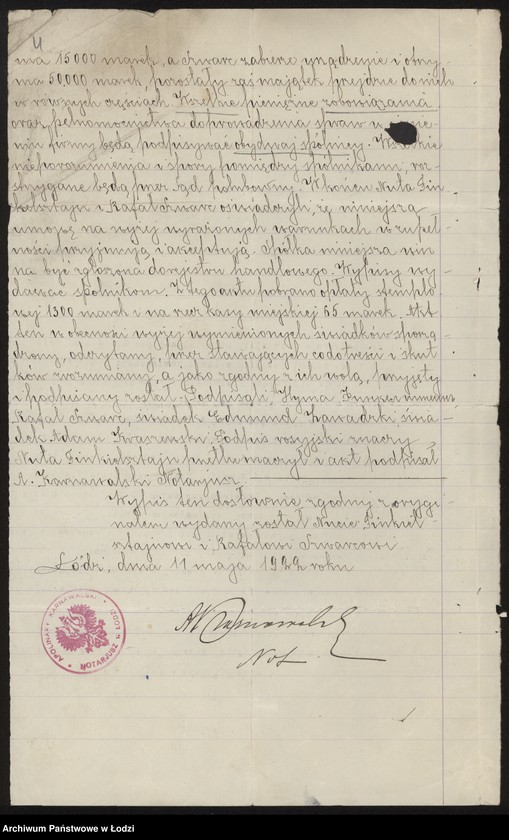 ma 15000 marek, a Szwarc zabierze urządzenie i otrzy-
ma 50,000 marek, pozostały zaś majątek przejdzie do nich
w równych częściach. Wszelkie pieniężne zobowiązania
oraz pełnomocnictwa do prowadzenia spraw w imie-
niu firmy będą podpisywać obydwaj spólnicy. Wszelkie
nieporozumienia i spory pomiędzy spólnikami, roz-
strzygane będą przez sąd polubowny. W końcu Nuta Fin-
kielsztajn i Rafał Szwarc oświadczyli, że niniejszą
umowę na wyżej wyrażonych warunkach w zupeł-
ności przyjmują i akceptują. Spółka niniejsza win-
na być zgłoszona do rejestru handlowego. Wypisy wy-
dawać spólnikom. Z tego aktu pobrano opłaty stemplo-
wej 1300 marek i na rzecz kasy miejskiej 65 marek. Akt
ten w obecności wyżej wymienionych świadków sporzą-
dzony, odczytany, przez stawających co do treści i skut-
ków zrozumiany, a jako zgodny z ich wolą, przyjęty
i podpisany został. Podpisali:
Rafał Szwarc, świadek Edmund Zawadzki, świa-
dek Adam Kraszewski. Podpis rosyjski znaczy
Nuta Finkielsztajn i akt podpisał
A. Karnawalski Notarjusz.
Wypis ten dosłownie zgodny z orygi-
nałem wydany został Nucie Finkiel-
sztajnowi i Rafałowi Szwarcowi.
Łódź, dnia 11 maja 1922 roku
APOLINARY KARNAWALSKI • NOTARJUSZ W ŁODZI •
A Karnawalski
Not.
Archiwum Państwowe w Łodzi